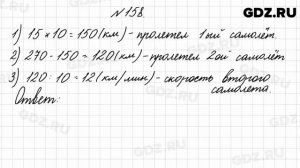 GDZ.RU
№ 158.
1) 15 × 10 = 150 (км) - пролетел 1ый самолёт
2) 270 - 150 = 120 (км) - пролетел 2ой самолёт
3) 120 : 10 = 12 (км/мин) - скорость второго
самолета
Ответ:
GDZ.RU